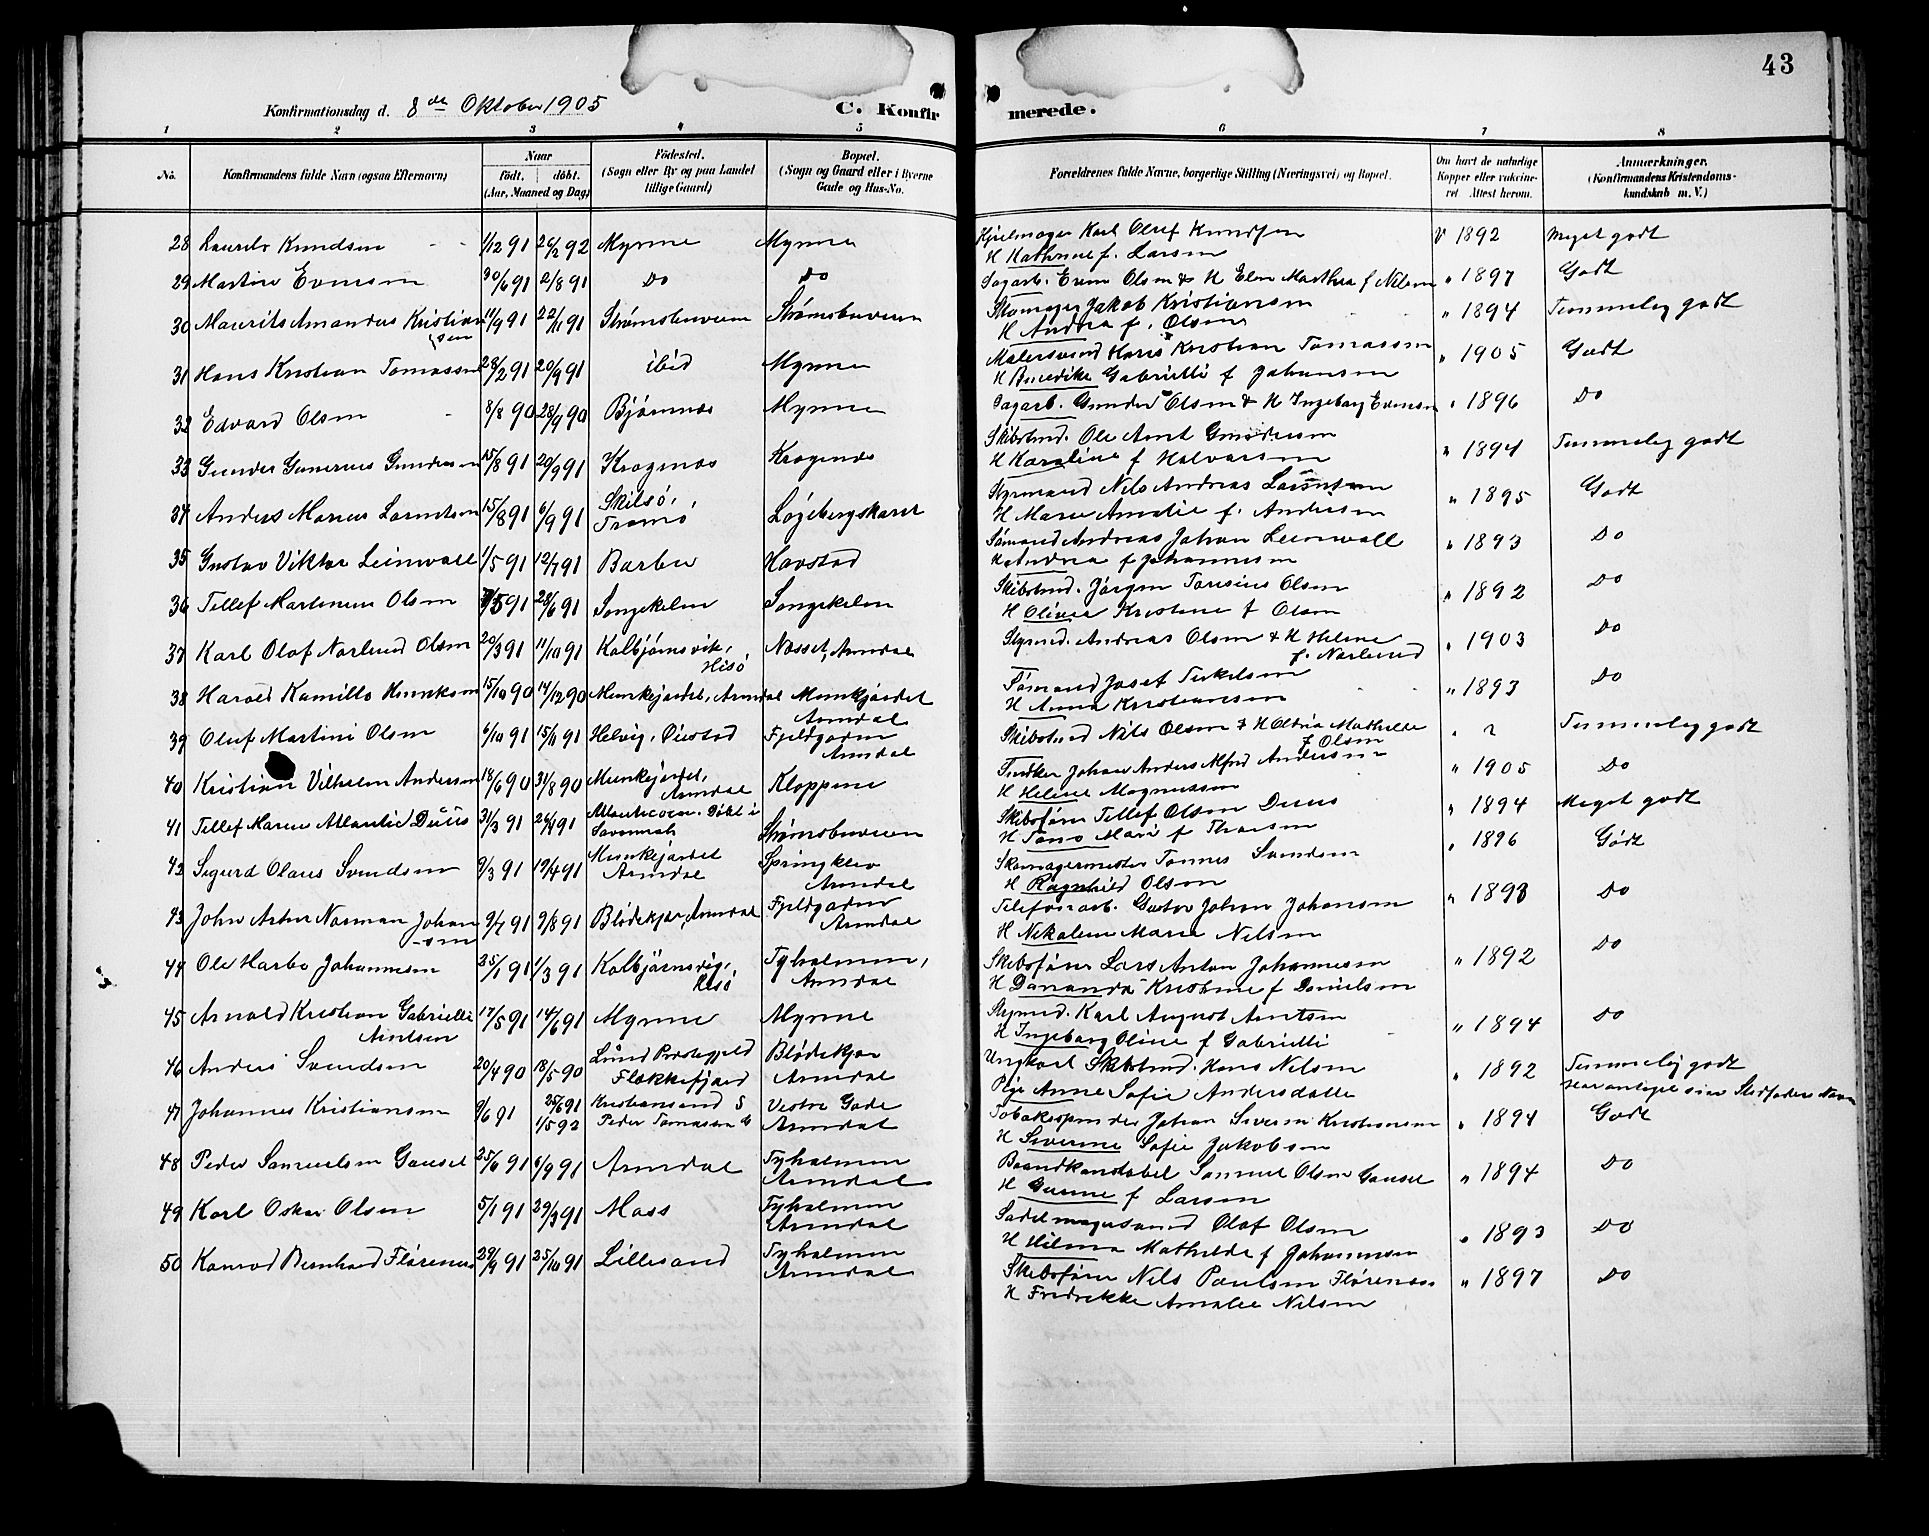 43
Konfirmationsdag d. 8de Oktober 1905
C. Konfirmerede.
1 2 3 4 5 6 7 8
No. Konfirmandens fulde Navn (ogsaa Efternavn) Naar født. døbt. (Aar, Maaned og Dag) Fødested. (Sogn eller By og paa Landet tillige Gaard) Bopæl. (Sogn og Gaard eller i Byerne Gade og Hus-No. Forældrenes fulde Navne, borgerlige Stilling (Næringsvei) og Bopæl. Om havt de naturlige Kopper eller vakcineret Attest herom. Anmærkninger. (Konfirmandens Kristendomskundskab m. V.)
28 Laurits Knudsen 1/12 91 26/2 92 Myrene Myrene Hjulmager Karl Oluf Knudsen V 1892 Meget godt
H Kathrine f. Larsen
29 Martin Evensen 30/6 91 2/8 91 Do Do Sagarb. Even Olsen & H Elen Marthea f Nilsen " 1897 Godt
30 Maurits Amandus Kristiansen 11/9 91 22/11 91 Strømsbuveien Strømsbuveien Skomager Jakob Kristiansen " 1894 Temmelig godt
H Andrea f. Olsen
31 Hans Kristian Tomassen 28/2 91 20/9 91 ibid Myrene Malersvend Hans Kristian Tomassen " 1905 Godt
H Benedikte Gabrielle f Johansen
32 Edvard Olsen 8/8 90 28/9 90 Bjørnnes Myrene Sagarb. Gunder Olsen & H Ingeborg Evensen " 1896 Do
33 Gunder Gunerius Gundersen 15/8 91 20/9 91 Kragenæs Kragenæs Skibstmd. Ole Arnt Gundersen " 1894 Temmelig godt
H Karoline f Halvorsen
34 Anders Marius Larentsen 15/8 91 6/9 91 Skilsø, Tromø Løgebergskaret Styrmand Nils Andreas Larentsen " 1895 Godt
H Marie Amalie f. Andersen
35 Gustav Viktor Leinwall 1/5 91 12/7 91 Barbu Havstad Sømand Andreas Johan Leinwall " 1893 Do
H Andrea f Johannesen
36 Tellef Martenius Olsen 5 91 28/6 91 Songekilen Songekilen Skibstmd. Jørgen Olsen " 1892 Do
H Olivie Kristine f Olsen
37 Karl Olaf Norlund Olsen 20/3 91 11/10 91 Kolbjørnsvik, Hisø Næsset, Arendal Styrmd. Andreas Olsen & H Helene " 1903 Do
f. Norlund
38 Harald Kamillo Henriksen 15/10 90 14/12 90 Munkejordet, Arendal Munkjordet Arendal Sømand Josef Terkelsen " 1893 Do
H Anna Kristiansen
39 Oluf Martini Olsen 6/10 91 15/11 91 Helvig, Øiestad Fjeldgaden Arendal Skibstmd Nils Olsen & H Mathilde " 2 Temmelig godt
f Olsen
40 Kristian Vilhelm Andersen 18/6 90 31/8 90 Munkejordet, Arendal Kloppene Snedker Johan Anders Alfred Andersen " 1905 Do
H Helene Magnussen
41 Tellef Maren Atlantic Duus 31/3 91 26/4 91 Atlanticocean. Døbt i Savannah Strømsbuveien Skibsfører Tellef Olsen Duus " 1894 Meget godt
H Mari f Thorsen
42 Sigurd Olaus Svendsen 9/3 91 19/4 91 Munkejordet Arendal Springklev Arendal Skomagermester Tønnes Svendsen " 1896 Godt
H Ragnhild Olsen
43 John Artur Norman Johansen 9/7 91 9/8 91 Blødekjær, Arendal Fjeldgaden Arendal Telefonarb. Gustav Johan Johansen " 1893 Do
H Nikoline Marie Nilsen
44 Ole Harbo Johannesen 25/1 91 1/3 91 Kolbjørnsvig, Hisø Tyholmen, Arendal Skibsfører Lars Anton Johannesen " 1892 Do
H Kristine f Danielsen
45 Arnold Kristian Gabrielli Arntsen 17/5 91 14/6 91 Myrene Myrene Styrmd. Karl August Arntsen " 1894 Do
H Ingeborg Oline f Gabrielli
46 Anders Svendsen 20/4 90 18/5 90 Lund Præstegjeld Flekkefjord Blødekjær Arendal Ungkarl Skibstmd. Hans Nilsen " 1892 Temmelig godt
Pige Anne Sofie Andersdatter har antaget sin Stedfaders Navn
47 Johannes Kristiansen 9/6 91 25/6 91 1/5 92 Kristiansand S Peder Tomassen Vestre Gade Arendal Tobakspinder Johan Severin Kristiansen " 1894 Godt
H Severine Sofie Jakobsen
48 Peder Samuelsen Gausel 25/6 91 6/9 91 Arendal Tyholmen Arendal Brandkonstabel Samuel Olsen Gausel " 1894 Do
H Gurine f Larsen
49 Karl Oskar Olsen 5/1 91 29/3 91 Moss Tyholmen Arendal Sadelmagersvend Olaf Olsen " 1893 Do
H Hilma Mathilde f Johannesen
50 Konrad Bernhard Flørenes 29/9 91 25/10 91 Lillesand Tyholmen Arendal Skibsfører Nils Paulsen Flørenæs " 1897 Do
H Fredrekke Amalie Nilsen